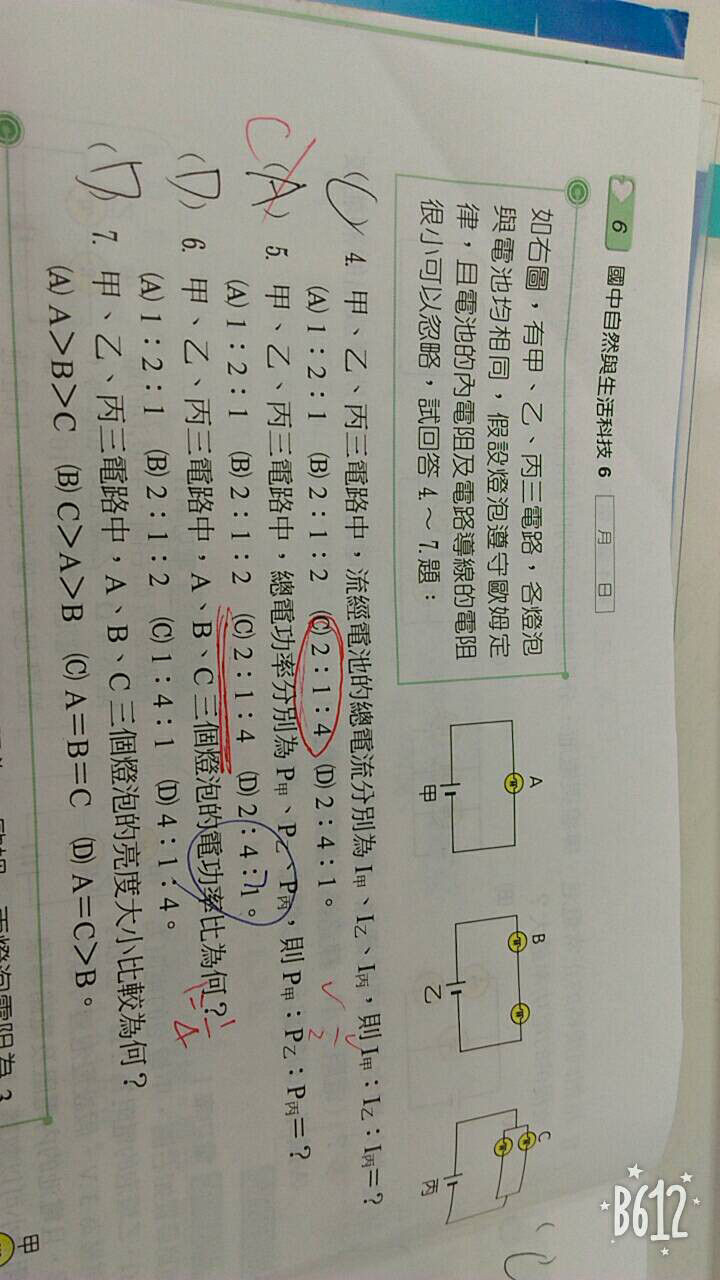 6 國中自然與生活科技 6 月 日
如右圖,有甲、乙、丙三電路,各燈泡
與電池均相同,假設燈泡遵守歐姆定
律,且電池的內電阻及電路導線的電阻
很小可以忽略,試回答 4.~7.題:
A
甲
B
乙
C
丙
(C) 4. 甲、乙、丙三電路中,流經電池的總電流分別為 I甲、I乙、I丙,則 I甲:I乙:I丙=?
(A) 1:2:1 (B) 2:1:2 (C) 2:1:4 (D) 2:4:1。
C (A) 5. 甲、乙、丙三電路中,總電功率分別為 P甲、P乙、P丙,則 P甲:P乙:P丙=?
(A) 1:2:1 (B) 2:1:2 (C) 2:1:4 (D) 2:4:1。
(D) 6. 甲、乙、丙三電路中,A、B、C 三個燈泡的電功率比為何?
(A) 1:2:1 (B) 2:1:2 (C) 1:4:1 (D) 4:1:4。
(D) 7. 甲、乙、丙三電路中,A、B、C 三個燈泡的亮度大小比較為何?
(A) A>B>C (B) C>A>B (C) A=B=C (D) A=C>B。
甲
B612